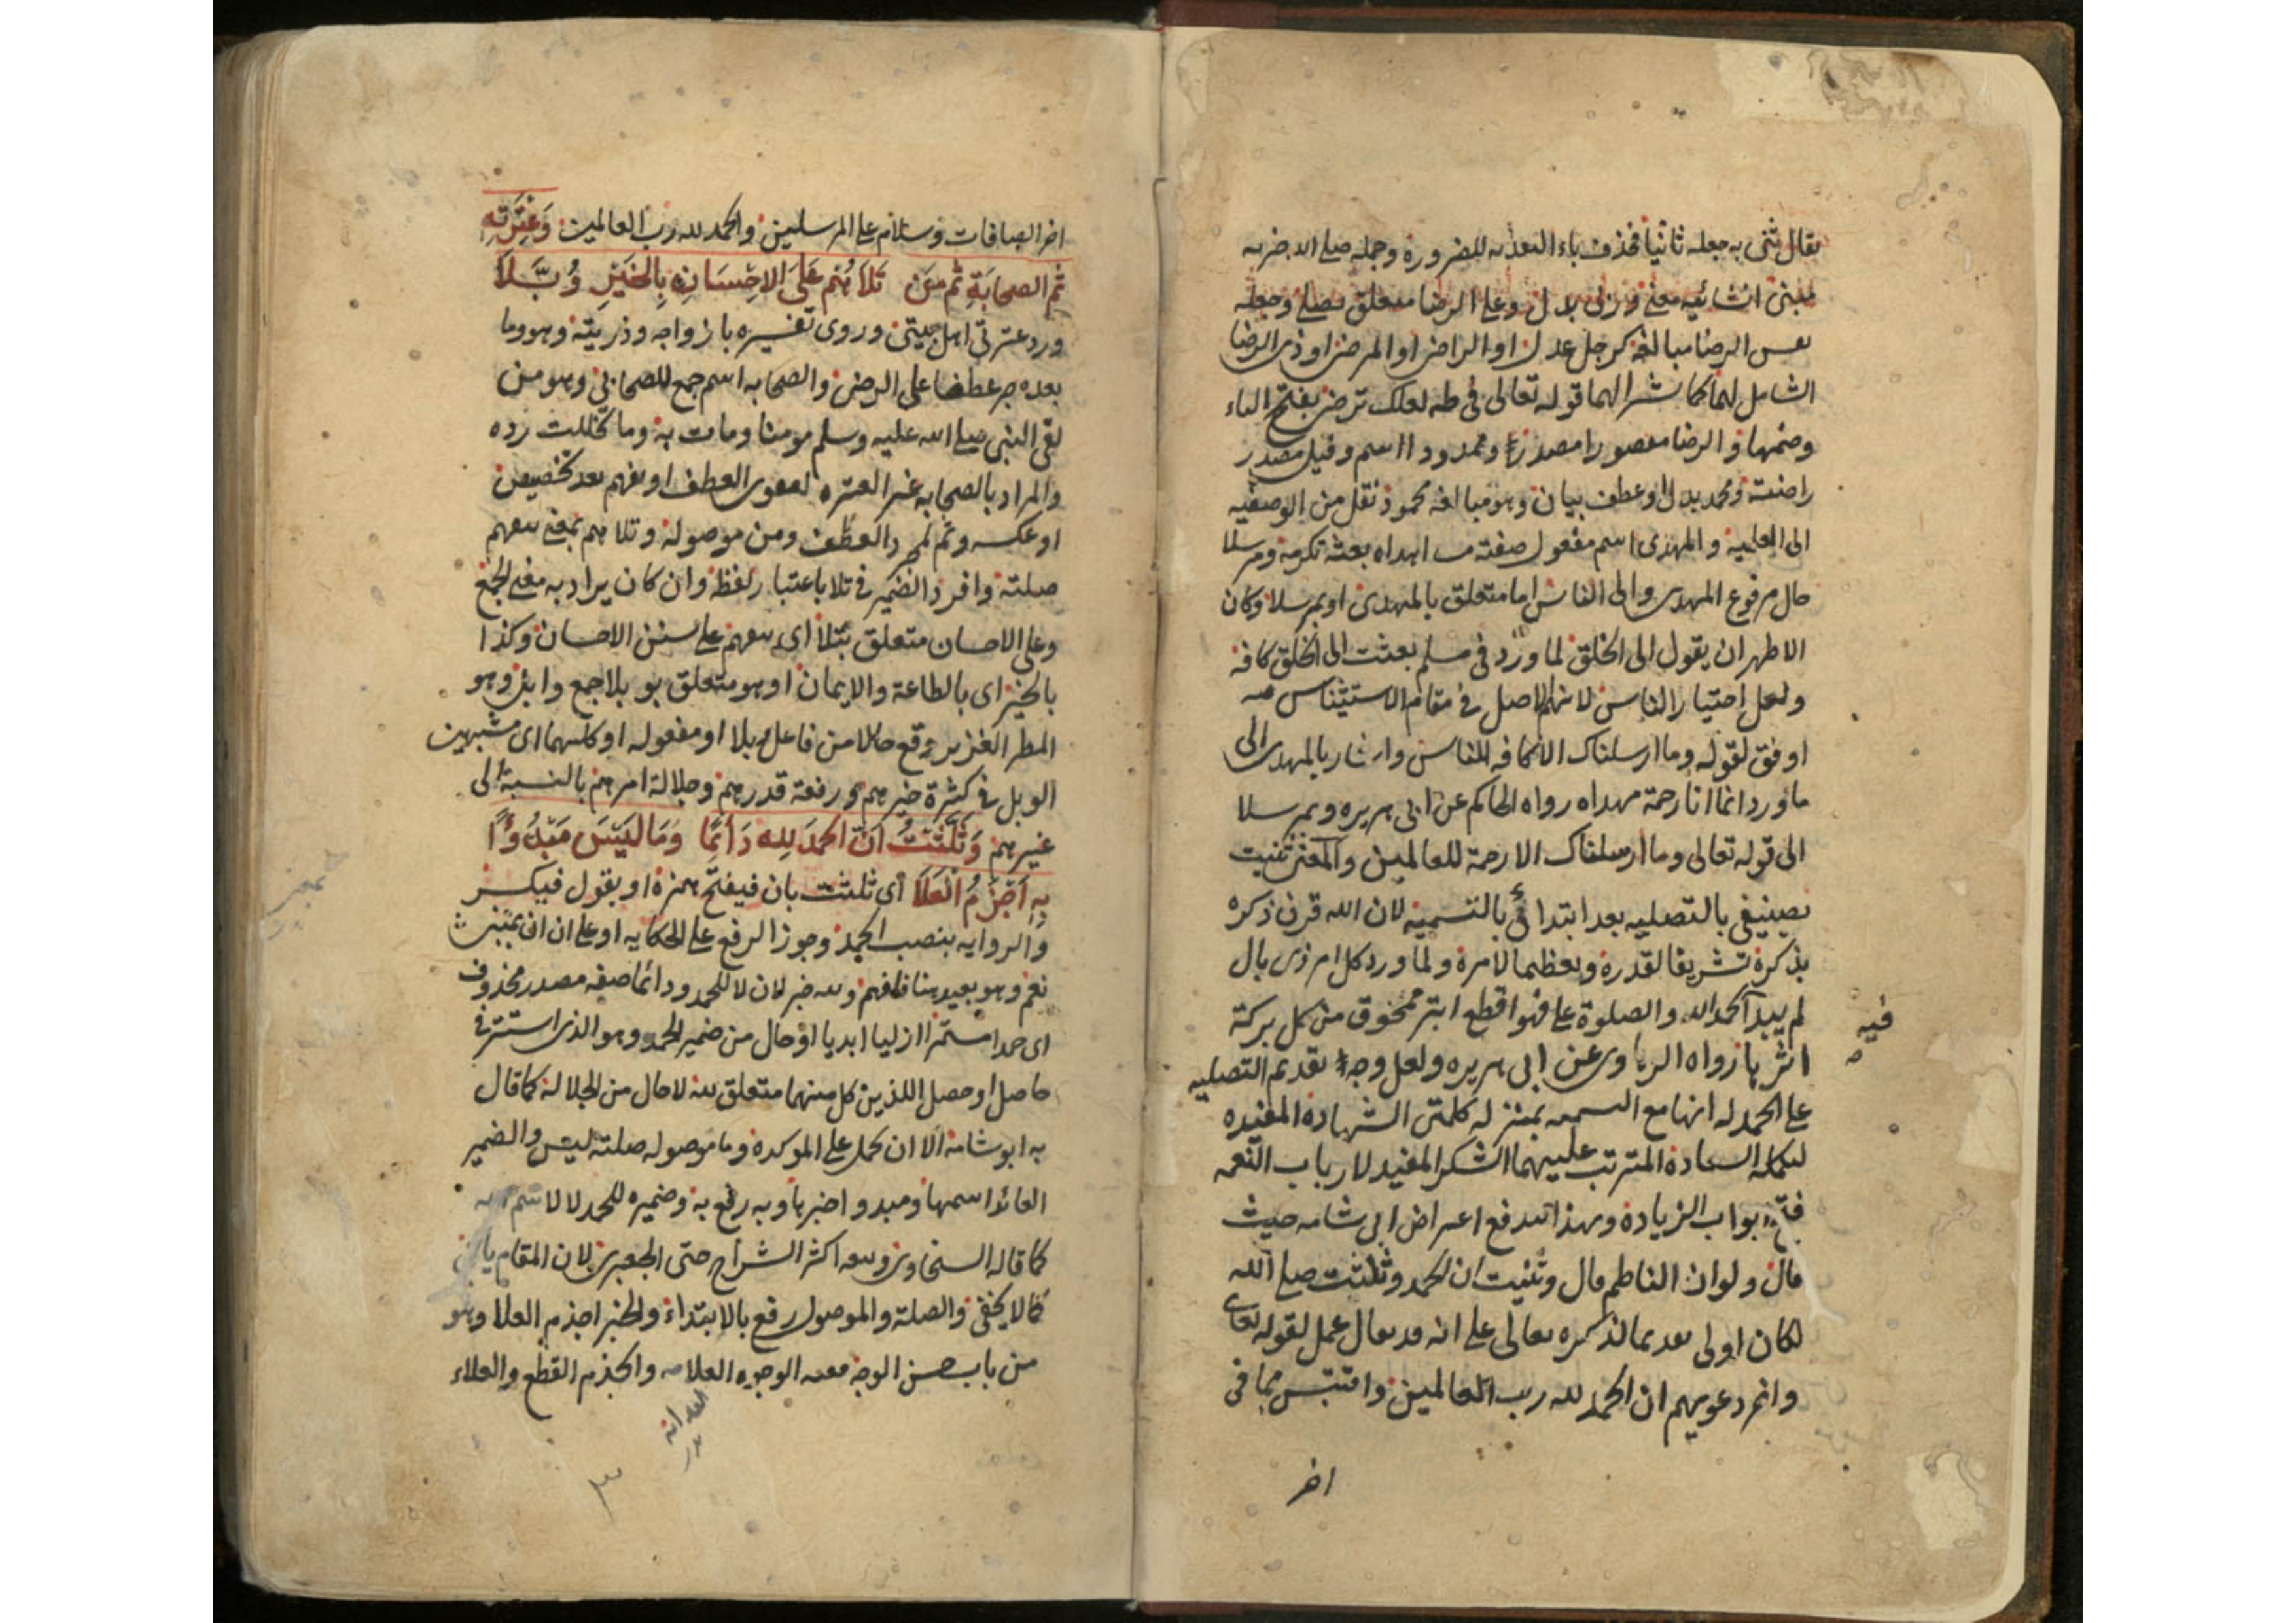 يقال ثنى به جعله ثانيا فحذف باء التعديه للضرورة وجمله صلى الله خبريه
مبنى انشائيه معنى وزلى بدل وعلى الرضا متعلق بصلى وجعله
نفس الرضا مبالغة كرجل عدل او الراضى او المرضى او ذى الرضا
الشامل لهما كما يشير الهما قوله تعالى فى طه لعلك ترضى بفتح التاء
وضمها والرضا مقصورا مصدر وممدودا اسم وقيل مصدر
راضيته ومحمد بدل او عطف بيان وهو مبالغه محمود نقل من الوصفيه
الى العلميه والمهدى اسم مفعول صفته من اهداه بعثه تكرمة ومرسلا
حال مرفوع المهدى والى الناس اما متعلق بالمهدى او بمرسلا وكان
الاظهر ان يقول الى الخلق لما ورد فى مسلم بعثت الى الخلق كافة
ولعل اختيار الناس لانهم الاصل فى مقام الاستيناس
اوفق لقوله وما ارسلناك الا كافه للناس واشار بالمهدى الى
ما ورد انما انا رحمة مهداه رواه الحاكم عن ابى هريره وبمرسلا
الى قوله تعالى وما ارسلناك الا رحمة للعالمين والمعنى ثنيت
تصنيفى بالتصليه بعد ابتدائى بالتسمية لان الله قرن ذكره
بذكره تشريفا لقدره وتعظيما لامره ولما ورد كل امر ذى بال
لم يبدأ بحمد الله والصلوة على فهو اقطع ابتر ممحوق من كل بركة
فيه
اثر بها رواه الرهاوى عن ابى هريره ولعل وجه تقديم التصليه
على الحمد له انها مع التسميه بمنزله كلمتى الشهادة المفيده
لتكمله السعادة المترتب عليهما الشكر المفيد لارباب النعمه
فتح ابواب الزيادة وبهذا اندفع اعتراض ابى شامه حيث
قال ولو ان الناظم قال وثنيت ان الحمد وثلثت صلى الله
لكان اولى تقديما لذكره تعالى على انه قد يقال عمل لقوله تعالى
واخر دعويهم ان الحمد لله رب العالمين واقتبس مما فى
اخر
اخر الصافات وسلام على المرسلين والحمد لله رب العالمين وَعِتْرَتِهِ
ثم الصحابَةِ ثم مَن تَلاَهُم عَلَى الاِحْسَانِ بِالخَيْرِ وُبَّلاَ
ورد عترتى اهل بيتى وروى تفسيره بازواجه وذريته وهو وما
بعده جر عطفا على الرضى والصحابه اسم جمع للصحابى وهو من
لقى النبى صلى الله عليه وسلم مومنا ومات به وما تخللت رده
والمراد بالصحابه غير العتره لمقوى العطف او تعميم بعد تخصيص
او عكسه وثم لمجرد العطف ومن موصولة وتلاهم بمعنى تبعهم
صلته وافرد الضمير فى تلا باعتبار لفظه وان كان يراد به معنى الجمع
وعلى الاحسان متعلق بتلا اى تبعهم على سنن الاحسان وكذا
بالخير اى بالطاعة والايمان او هو متعلق بوبلا جمع وابل وهو
المطر الغزير وقع حالا من فاعل وبلا او مفعوله او كليهما اى مشبهين
الوبل فى كثرة خيرهم ورفعة قدرهم وجلالة امرهم بالنسبة الى
غيرهم وَثَلَّثْتُ اَنَّ الحمدَ لِلهِ دَائِمًا وَمَا لَيْسَ مَبْدُوْءًا
بِهِ اَجْزَمُ الْعَلاَ اى ثلثت بان فيفتح همزة او بقول فيكسر
والروايه بنصب الحمد وجوز الرفع على الحكايه او على ان ان بمعنى
نعم وهو بعيد هنا فافهم ولله خبر لان لا للحمد ودائما صفه مصدر محذوف
اى حمدا مستمرا ازليا ابديا او حال من ضمير الحمد وهو الذى استتر فى
حاصل او حصل اللذين كل منهما متعلق لله لا حال من الجلالة كما قال
به ابو شامه الا ان يحمل على الموكده وما موصوله صلته ليس والضمير
العائد اسمها ومبدوا خبرها وبه رفع به وضميره للحمد لا لاسم
كما قاله السخاوى وتبعه اكثر الشراح حتى الجعبرى لان المقام
كما لا يخفى والصلة والموصول رفع بالابتداء والخبر اجذم العلا وهو
من باب حسن الوجه معه الوجوه العلامه والجذم القطع والعلاء
٣